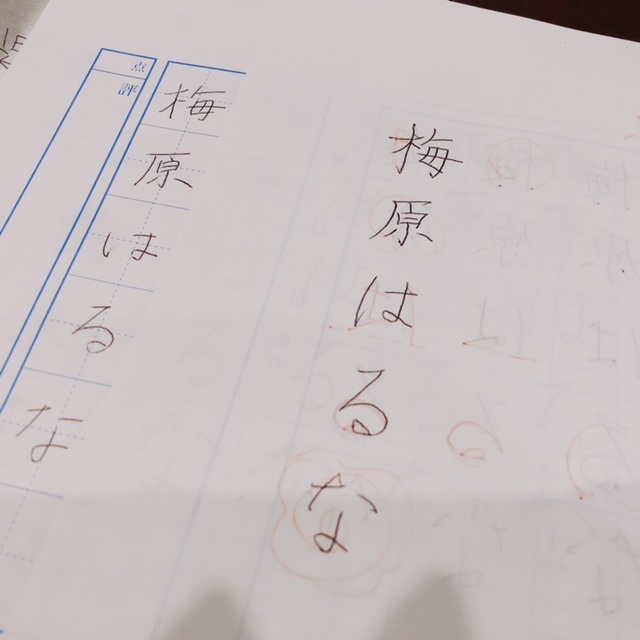 梅原はるな
点
評
梅原はるな